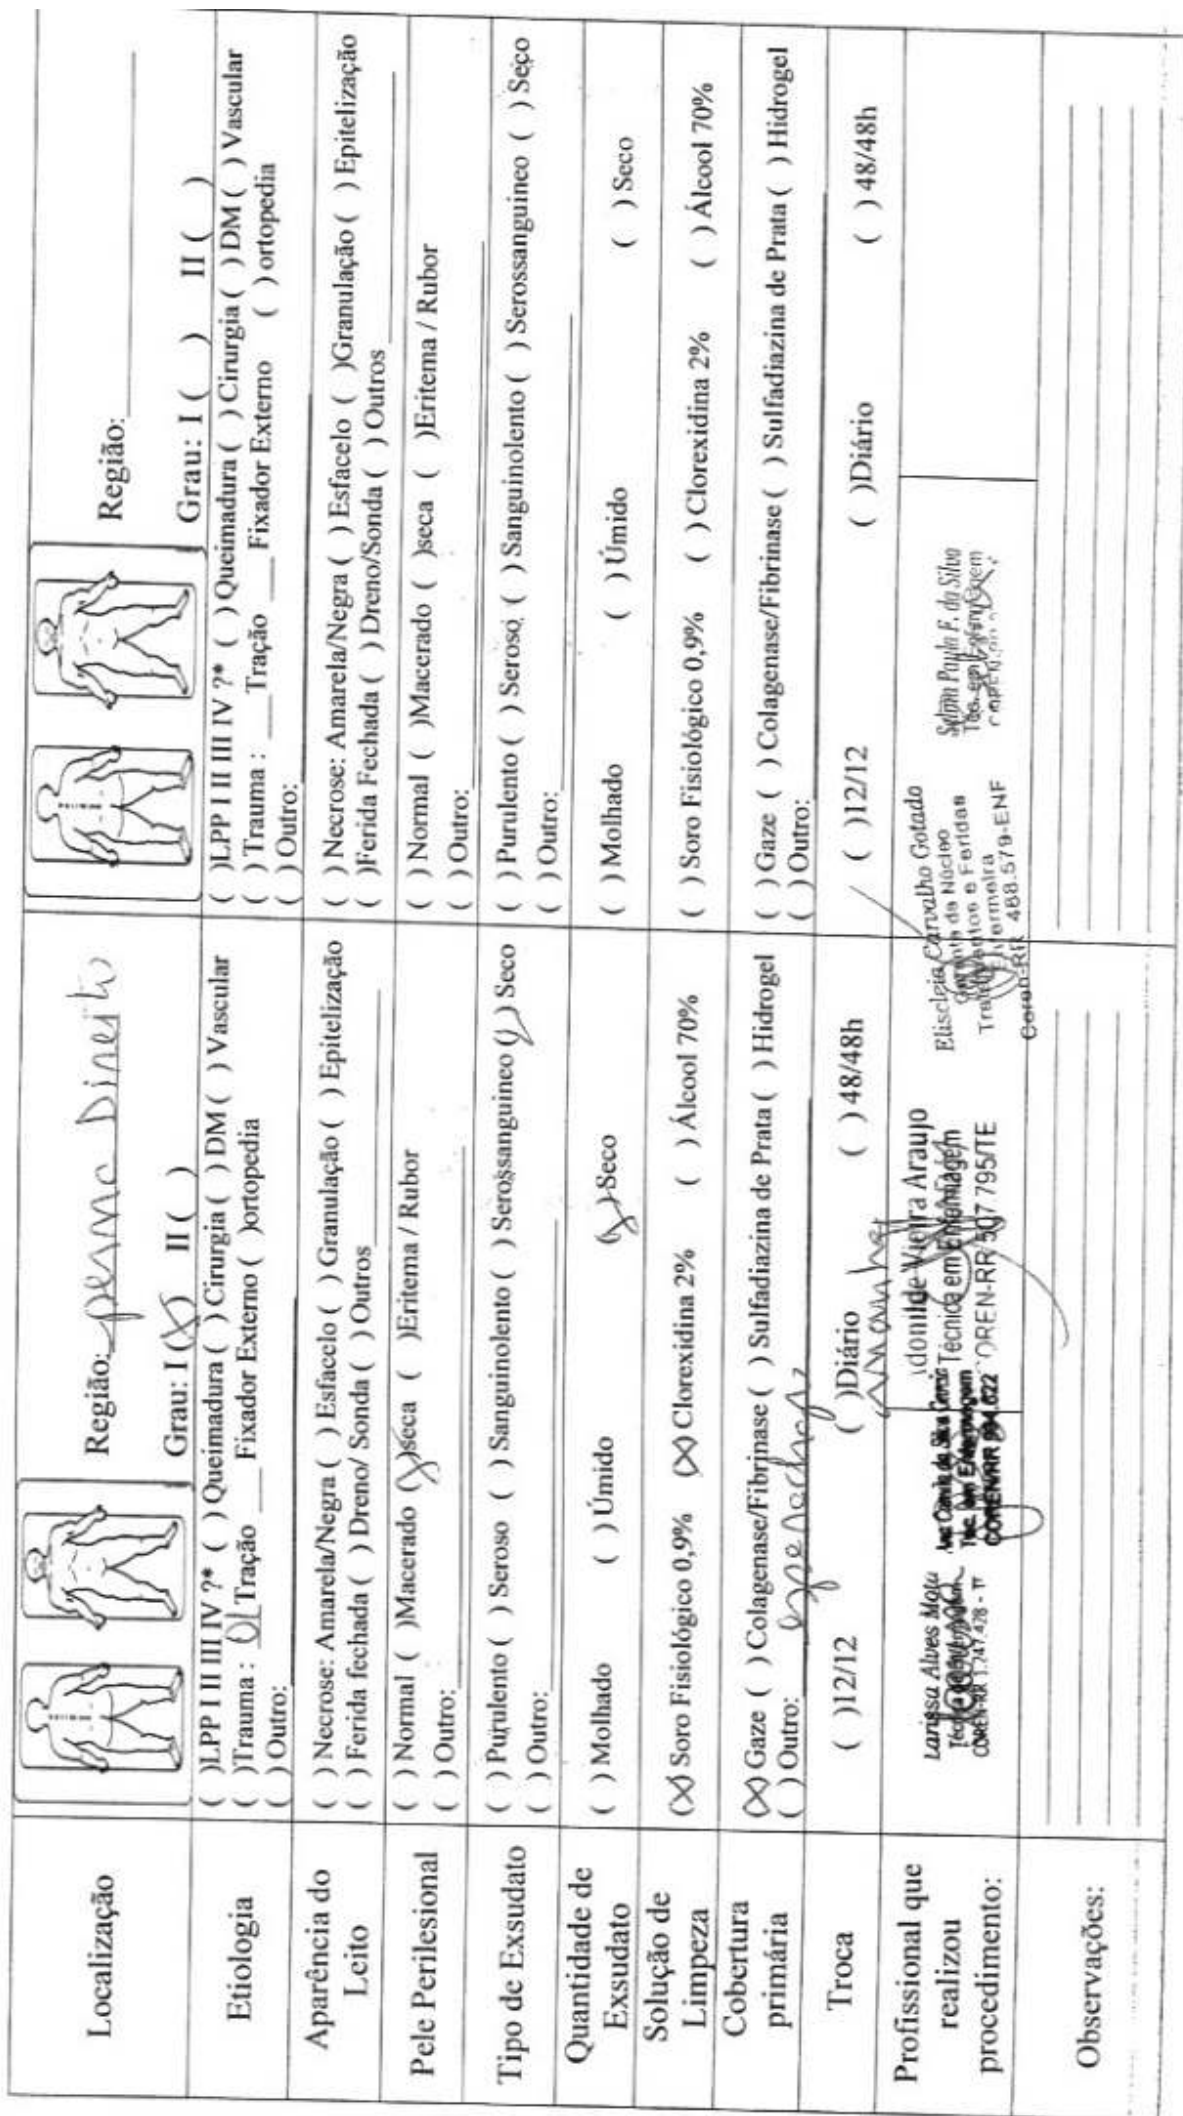 Localização
Região: perna Direita
Grau: I (X) II ( )
Região:
Grau: I ( ) II ( )
Etiologia
( )LPP I II III IV ?* ( ) Queimadura ( ) Cirurgia ( ) DM ( ) Vascular
( )Trauma : 01 Tração ___ Fixador Externo ( )ortopedia
( ) Outro:
( )LPP I II III IV ?* ( ) Queimadura ( ) Cirurgia ( ) DM ( ) Vascular
( ) Trauma : ___Tração ___ Fixador Externo ( ) ortopedia
( ) Outro:
Aparência do
Leito
( ) Necrose: Amarela/Negra ( ) Esfacelo ( ) Granulação ( ) Epitelização
( ) Ferida fechada ( ) Dreno/ Sonda ( ) Outros
( ) Necrose: Amarela/Negra ( ) Esfacelo ( )Granulação ( ) Epitelização
( )Ferida Fechada ( ) Dreno/Sonda ( ) Outros
Pele Perilesional
( ) Normal ( )Macerado (X)seca ( )Eritema / Rubor
( ) Outro:
( ) Normal ( )Macerado ( )seca ( )Eritema / Rubor
( ) Outro:
Tipo de Exsudato
( ) Purulento ( ) Seroso ( ) Sanguinolento ( ) Serossanguineo (X) Seco
( ) Outro:
( ) Purulento ( ) Seroso ( ) Sanguinolento ( ) Serossanguineo ( ) Seco
( ) Outro:
Quantidade de
Exsudato
( ) Molhado ( ) Úmido (X) Seco
( ) Molhado ( ) Úmido ( ) Seco
Solução de
Limpeza
(X) Soro Fisiológico 0,9% (X) Clorexidina 2% ( ) Álcool 70%
( ) Soro Fisiológico 0,9% ( ) Clorexidina 2% ( ) Álcool 70%
Cobertura
primária
(X) Gaze ( ) Colagenase/Fibrinase ( ) Sulfadiazina de Prata ( ) Hidrogel
( ) Outro:
( ) Gaze ( ) Colagenase/Fibrinase ( ) Sulfadiazina de Prata ( ) Hidrogel
( ) Outro:
Troca
( )12/12 ( )Diário ( ) 48/48h
manhã
( )12/12 ( )Diário ( ) 48/48h
Profissional que
realizou
procedimento:
Larissa Alves Mota
COREN-RR 1.747.428 - TE
Tec. em Enfermagem
COREN-RR 994.622
donilde Vieira Araujo
Técnica em Enfermagem
COREN-RR 507795/TE
Eliscleia Carvalho Gotado
Gerente de Núcleo
Tratamentos e Feridas
Enfermeira
Coren-RR 468.579-ENF
Paula F. da Silva
Tec. em Enfermagem
Observações: